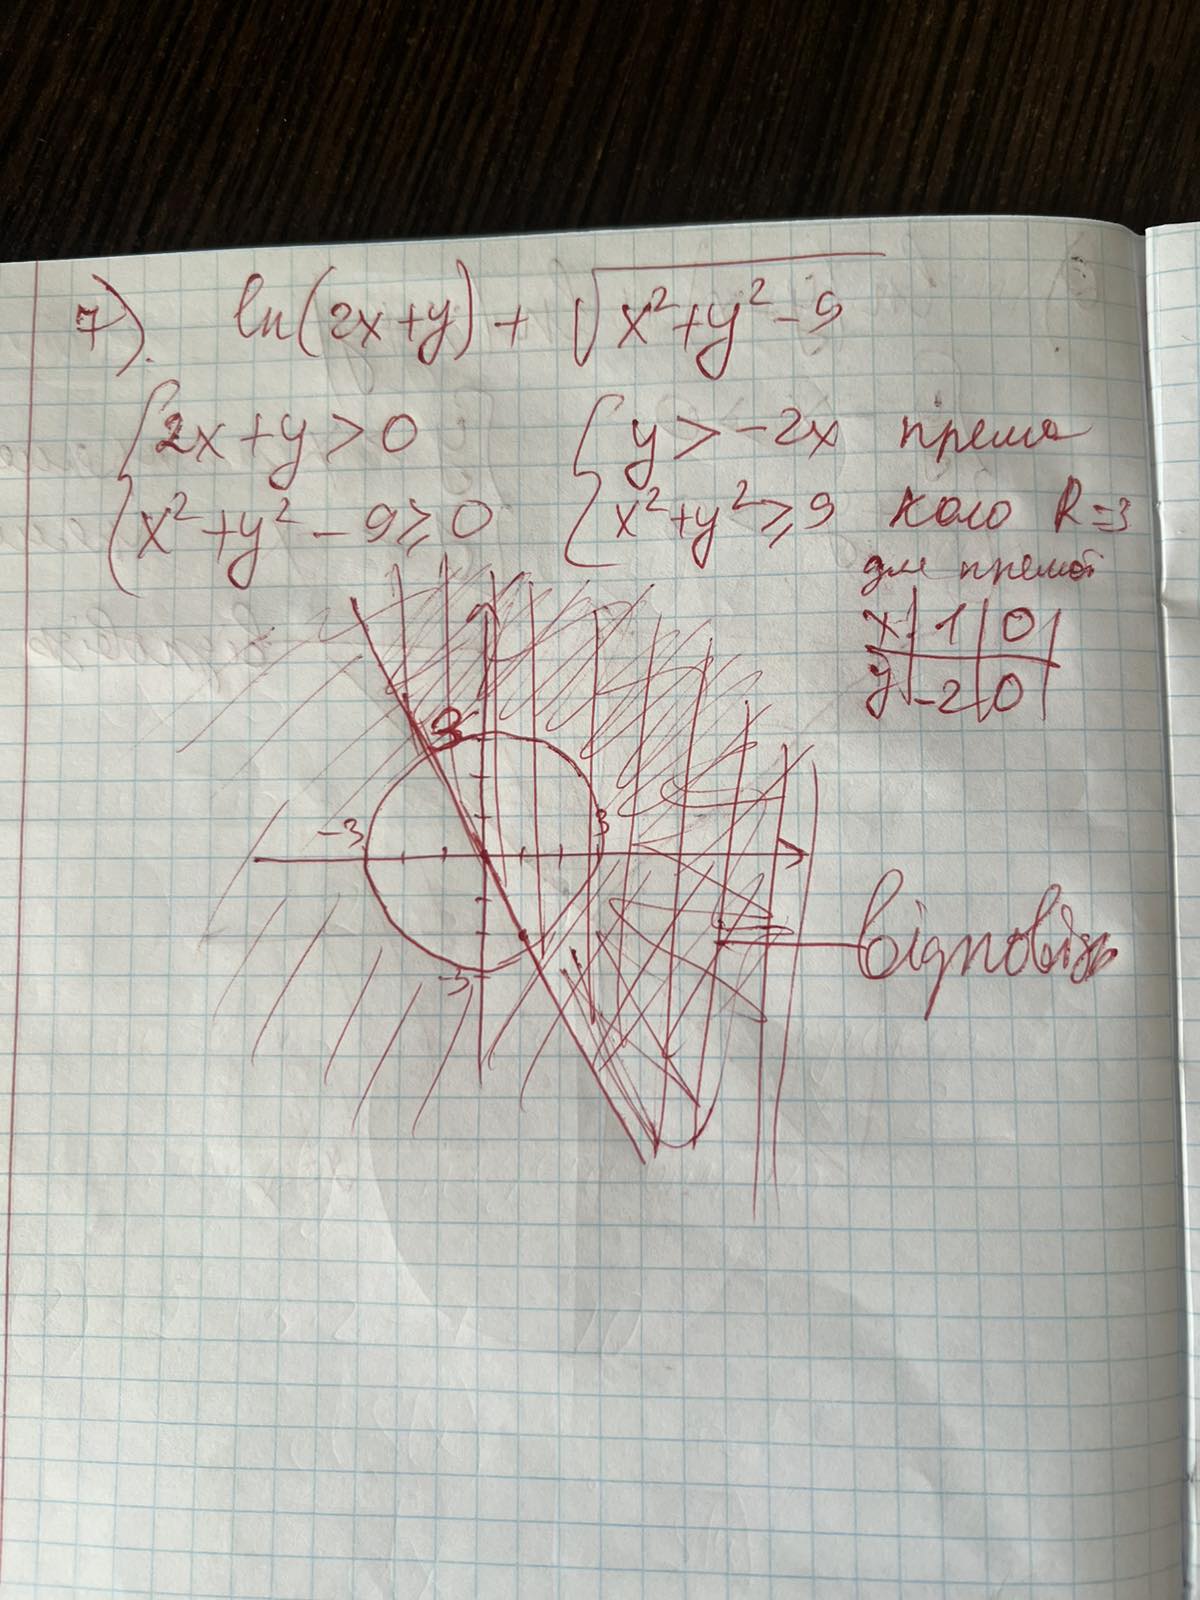 7). ln(2x+y) + √x²+y²-9
{2x+y>0 {y>-2x пряма
{x²+y²-9≥0 {x²+y²≥9 коло R=3
для прямої
x 1 0
y -2 0
3
-3 3
-3
відповідь